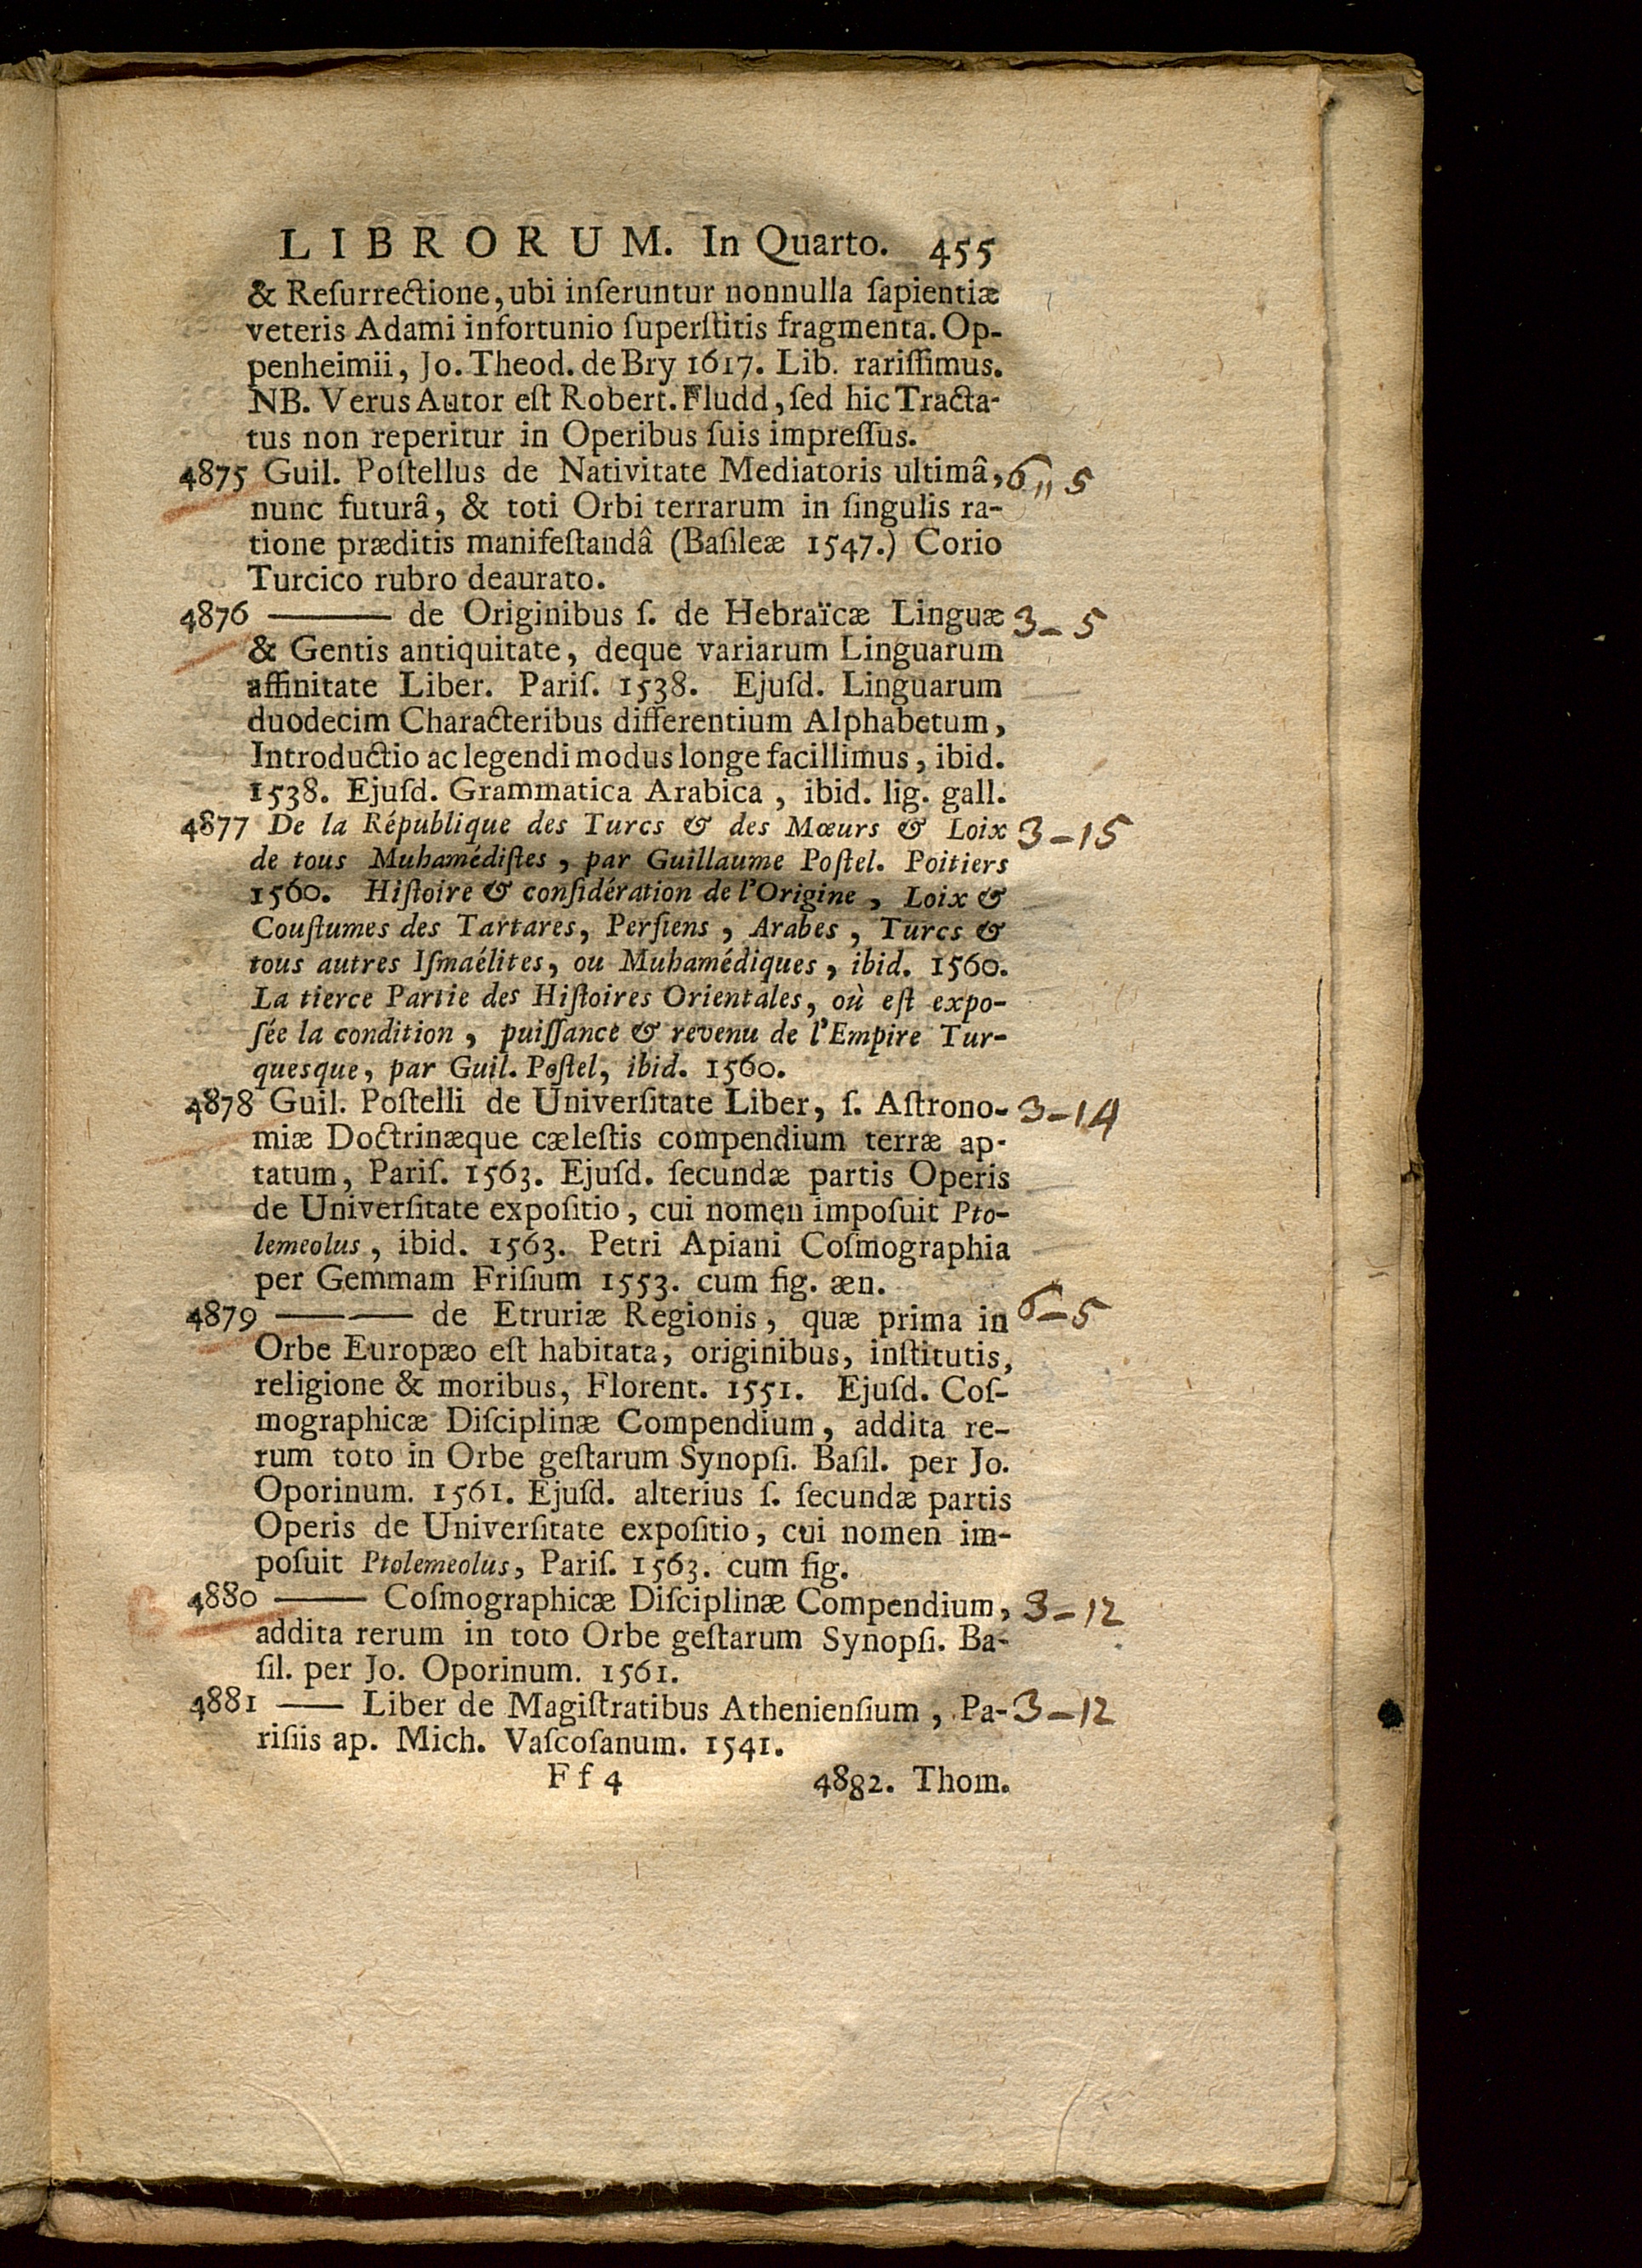 LIBRORUM. In Quarto. 455
& Reſurrectione, ubi inſeruntur nonnulla ſapientiæ
veteris Adami infortunio ſuperſtitis fragmenta. Op-
penheimii, Jo. Theod. de Bry 1617. Lib. rariſſimus.
NB. Verus Autor eſt Robert. Fludd, ſed hic Tracta-
tus non reperitur in Operibus ſuis impreſſus.
4875 Guil. Poſtellus de Nativitate Mediatoris ultimâ, 6 ,, 5
nunc futurâ, & toti Orbi terrarum in ſingulis ra-
tione præditis manifeſtandâ (Baſileæ 1547.) Corio
Turcico rubro deaurato.
4876 ——— de Originibus ſ. de Hebraïcæ Linguæ 3 – 5
& Gentis antiquitate, deque variarum Linguarum
affinitate Liber. Pariſ. 1538. Ejuſd. Linguarum
duodecim Characteribus differentium Alphabetum,
Introductio ac legendi modus longe facillimus, ibid.
1538. Ejuſd. Grammatica Arabica, ibid. lig. gall.
4877 De la République des Turcs & des Mœurs & Loix 3 – 15
de tous Muhamédiſtes, par Guillaume Poſtel. Poitiers
1560. Hiſtoire & conſidération de l'Origine, Loix &
Couſtumes des Tartares, Perſiens, Arabes, Turcs &
tous autres Iſmaélites, ou Muhamédiques, ibid. 1560.
La tierce Partie des Hiſtoires Orientales, où eſt expo-
ſée la condition, puiſſance & revenu de l'Empire Tur-
queſque, par Guil. Poſtel, ibid. 1560.
4878 Guil. Poſtelli de Univerſitate Liber, ſ. Aſtrono- 3 – 14
miæ Doctrinæque cæleſtis compendium terræ ap-
tatum, Pariſ. 1563. Ejuſd. ſecundæ partis Operis
de Univerſitate expoſitio, cui nomen impoſuit Pto-
lemeolus, ibid. 1563. Petri Apiani Coſmographia
per Gemmam Friſium 1553. cum fig. æn.
4879 ——— de Etruriæ Regionis, quæ prima in 6 – 5
Orbe Europæo eſt habitata, originibus, inſtitutis,
religione & moribus, Florent. 1551. Ejuſd. Coſ-
mographicæ Diſciplinæ Compendium, addita re-
rum toto in Orbe geſtarum Synopſi. Baſil. per Jo.
Oporinum. 1561. Ejuſd. alterius ſ. ſecundæ partis
Operis de Univerſitate expoſitio, cui nomen im-
poſuit Ptolemeolus, Pariſ. 1563. cum fig.
4880 ——— Coſmographicæ Diſciplinæ Compendium, 3 – 12
addita rerum in toto Orbe geſtarum Synopſi. Ba-
ſil. per Jo. Oporinum. 1561.
4881 —— Liber de Magiſtratibus Athenienſium, Pa- 3 – 12
riſiis ap. Mich. Vaſcoſanum. 1541.
Ff 4 4882. Thom.